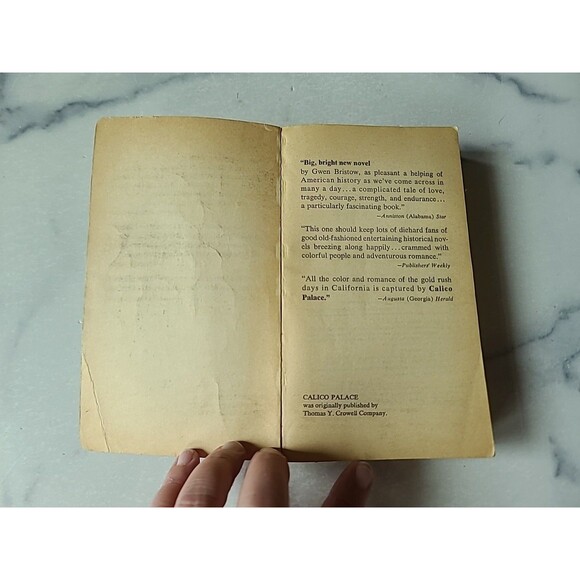 "Big, bright new novel
by Gwen Bristow, as pleasant a helping of
American history as we've come across in
many a day...a complicated tale of love,
tragedy, courage, strength, and endurance...
a particularly fascinating book."
—Anniston (Alabama) Star
"This one should keep lots of diehard fans of
good old-fashioned entertaining historical nov-
els breezing along happily...crammed with
colorful people and adventurous romance."
—Publishers' Weekly
"All the color and romance of the gold rush
days in California is captured by Calico
Palace."
—Augusta (Georgia) Herald
CALICO PALACE
was originally published by
Thomas Y. Crowell Company.